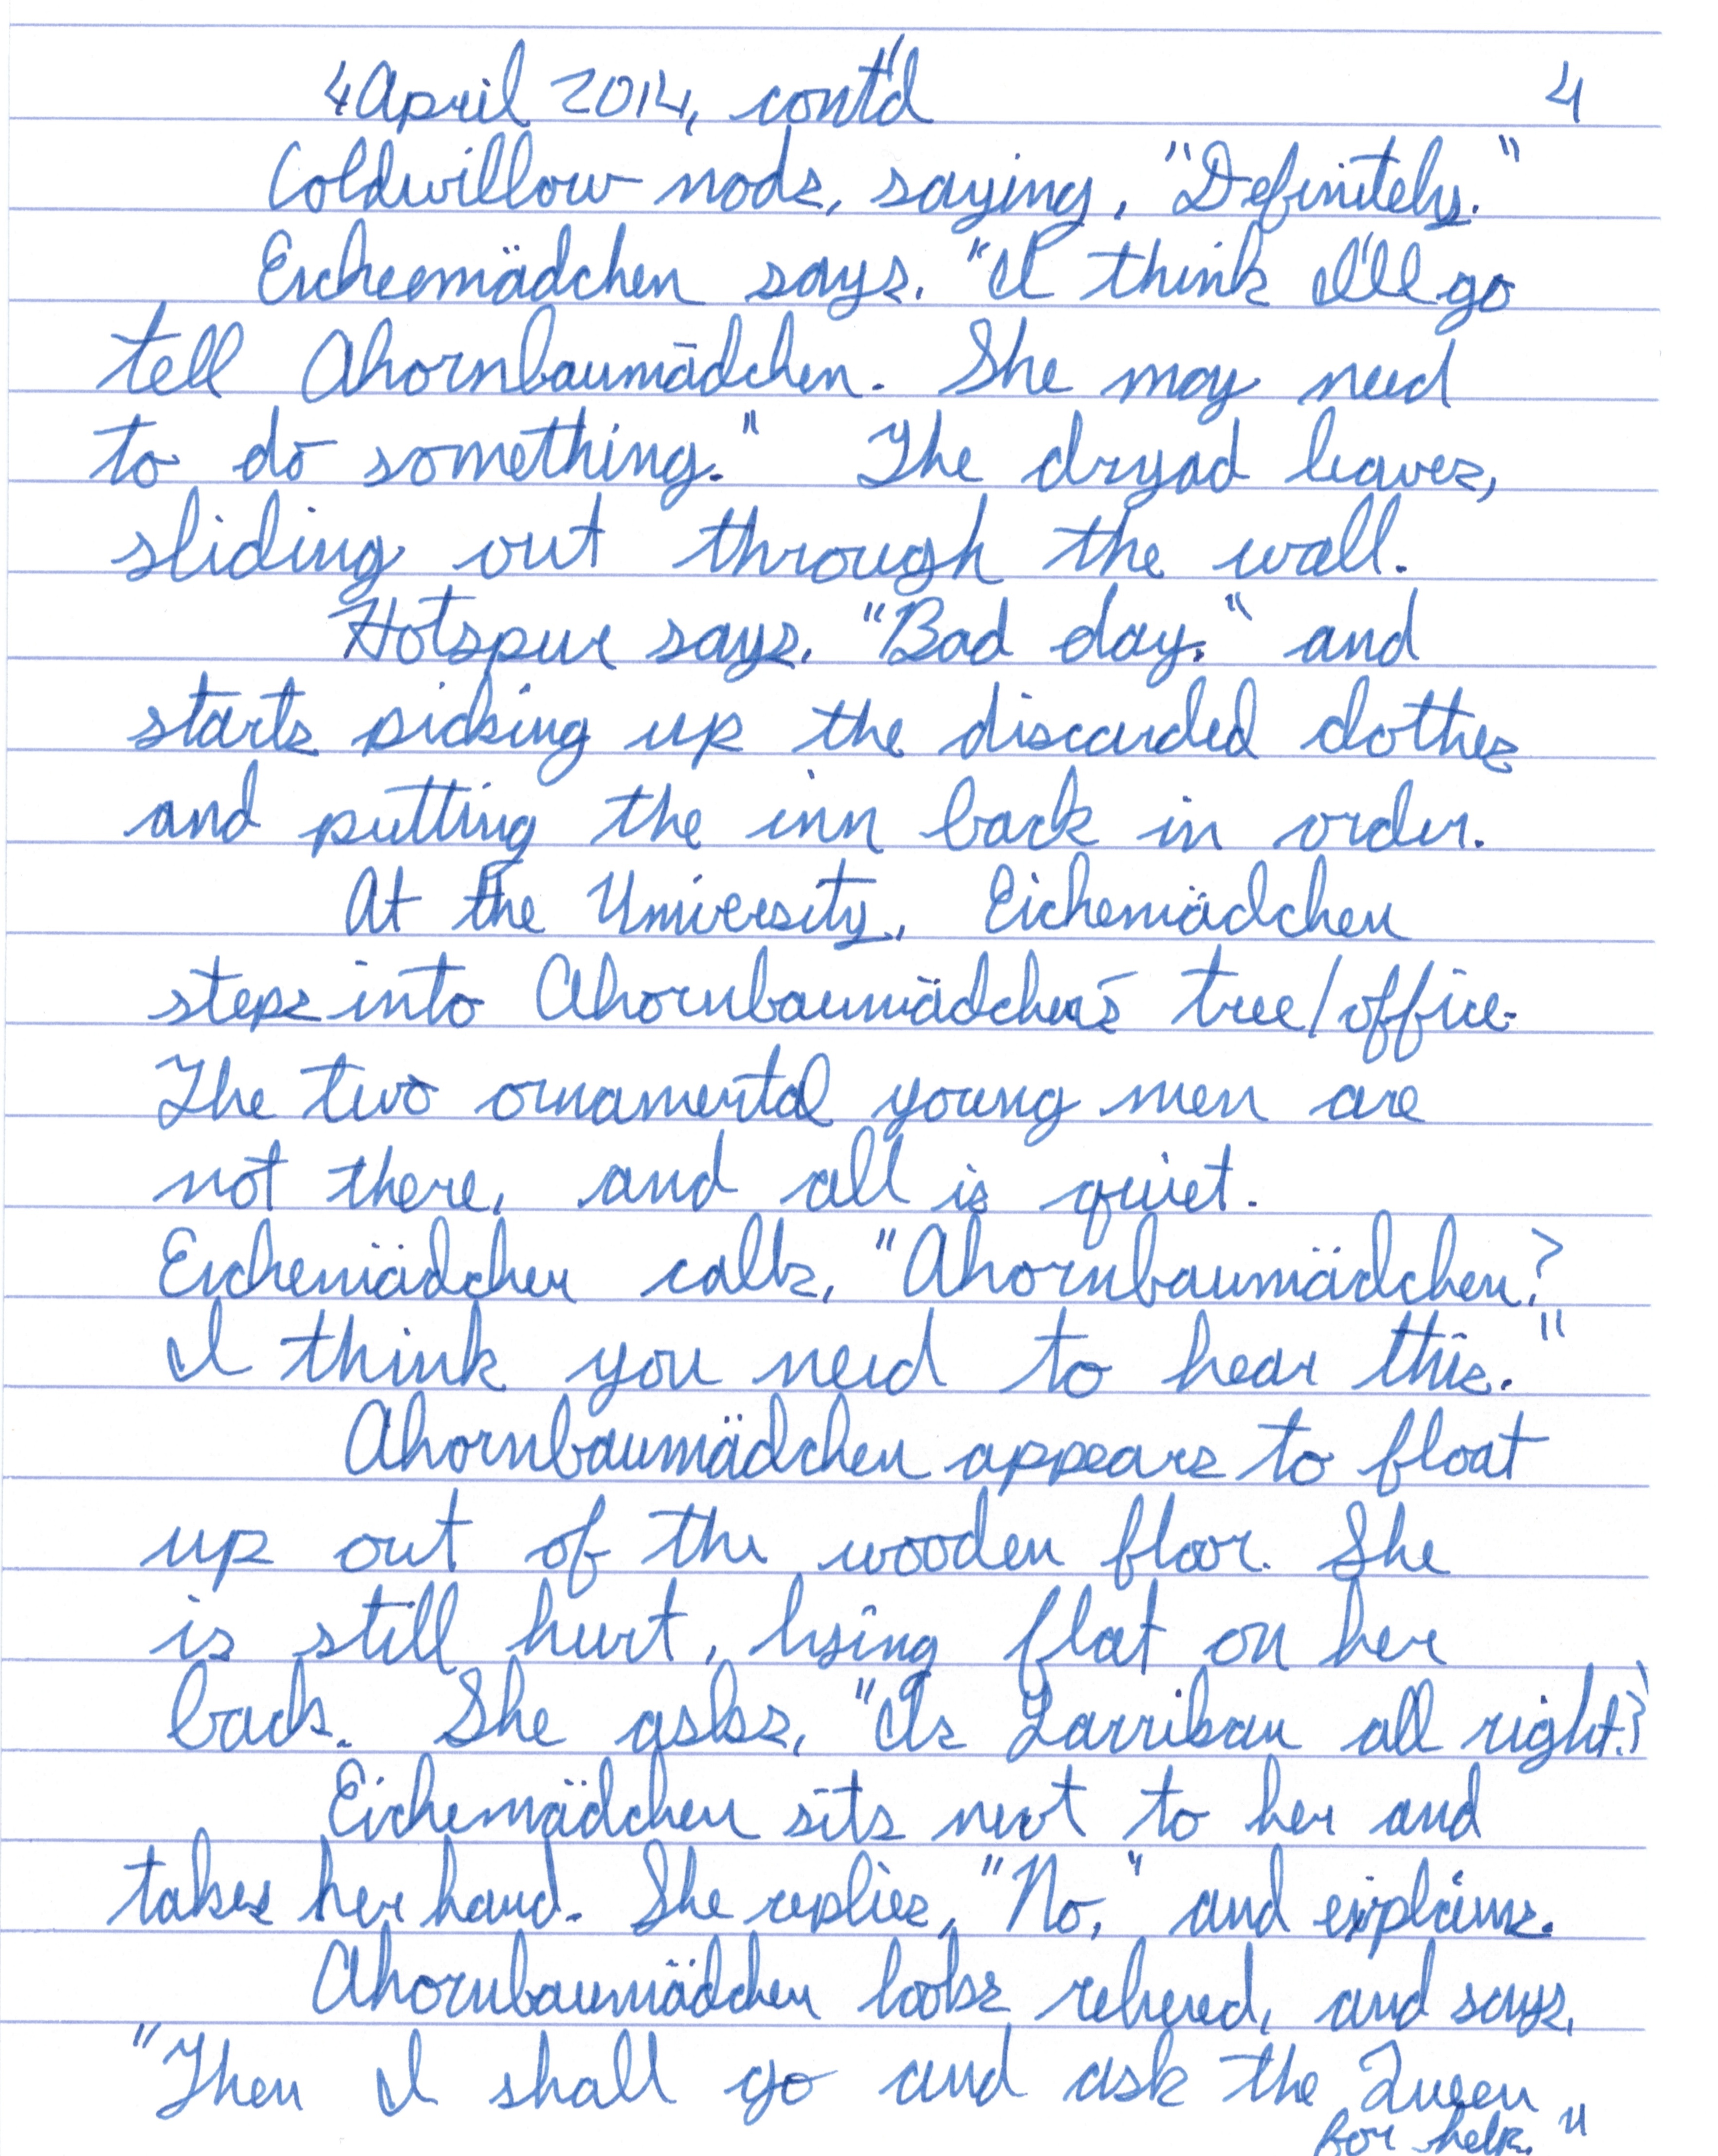 4 April 2014, cont'd 4
Coldwillow nods, saying, "Definitely."
Eicheemädchen says, "I think I'll go
tell Ahornbaumädchen. She may need
to do something." The dryad leaves,
sliding out through the wall.
Hotspur says, "Bad day." and
starts picking up the discarded clothes
and putting the inn back in order.
At the University, Eichemädchen
steps into Ahornbaumädchen's tree/office.
The two ornamental young men are
not there, and all is quiet.
Eichemädchen calls, "Ahornbaumädchen?
I think you need to hear this."
Ahornbaumädchen appears to float
up out of the wooden floor. She
is still hurt, lying flat on her
back. She asks, "Is Larriban all right?"
Eichemädchen sits next to her and
takes her hand. She replies, "No," and explains.
Ahornbaumädchen looks relieved, and says,
"Then I shall go and ask the Queen
for help."